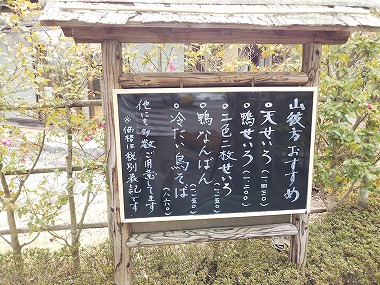 山彼方おすすめ
○天せいろ(一四五〇)
○鴨せいろ(一二〇〇)
○二色二枚せいろ(一二五〇)
○鴨なんばん(一二五〇)
○冷たい鳥そば(八六〇)
他にも多数ご用意してます
※価格は税別表記です